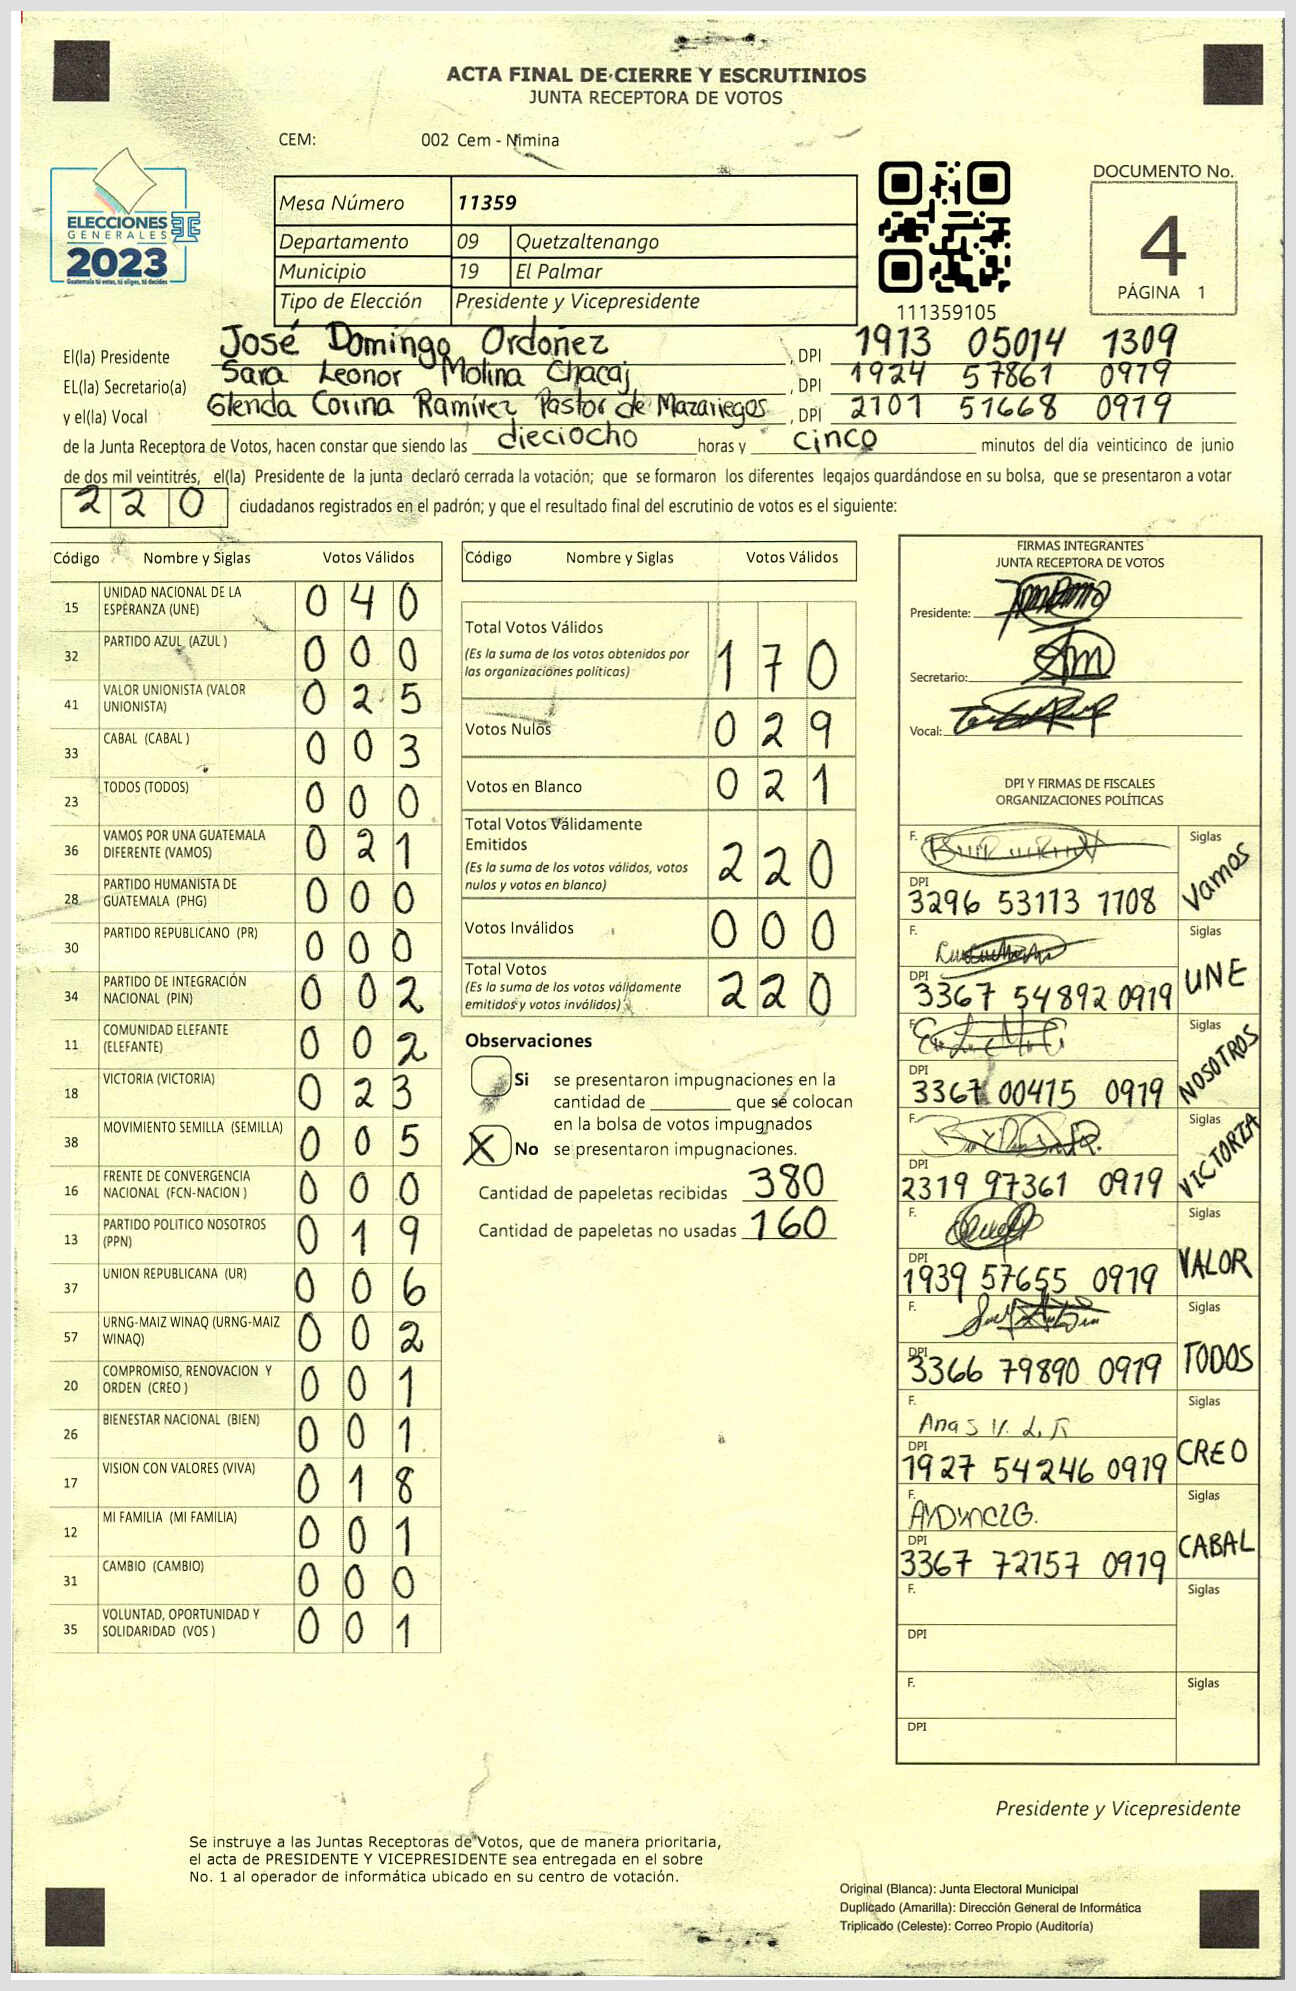 ACTA FINAL DE CIERRE Y ESCRUTINIOS
JUNTA RECEPTORA DE VOTOS
CEM: 002 Cem - Nimina
ELECCIONES
GENERALES
2023
Guatemala tú votas, tú eliges, tú decides
Mesa Número 11359
Departamento 09 Quetzaltenango
Municipio 19 El Palmar
Tipo de Elección Presidente y Vicepresidente
111359105
DOCUMENTO No.
4
PÁGINA 1
El(la) Presidente José Domingo Ordoñez, DPI 1913 05014 1309
EL(la) Secretario(a) Sara Leonor Molina Chacaj, DPI 1924 57861 0919
y el(la) Vocal Glenda Corina Ramírez Pastor de Mazariegos, DPI 2101 51668 0919
de la Junta Receptora de Votos, hacen constar que siendo las dieciocho horas y cinco minutos del día veinticinco de junio
de dos mil veintitrés, el(la) Presidente de la junta declaró cerrada la votación; que se formaron los diferentes legajos guardándose en su bolsa, que se presentaron a votar
220 ciudadanos registrados en el padrón; y que el resultado final del escrutinio de votos es el siguiente:
Código Nombre y Siglas Votos Válidos
15 UNIDAD NACIONAL DE LA ESPERANZA (UNE) 040
32 PARTIDO AZUL (AZUL ) 000
41 VALOR UNIONISTA (VALOR UNIONISTA) 025
33 CABAL (CABAL ) 003
23 TODOS (TODOS) 000
36 VAMOS POR UNA GUATEMALA DIFERENTE (VAMOS) 021
28 PARTIDO HUMANISTA DE GUATEMALA (PHG) 000
30 PARTIDO REPUBLICANO (PR) 000
34 PARTIDO DE INTEGRACIÓN NACIONAL (PIN) 002
11 COMUNIDAD ELEFANTE (ELEFANTE) 002
18 VICTORIA (VICTORIA) 023
38 MOVIMIENTO SEMILLA (SEMILLA) 005
16 FRENTE DE CONVERGENCIA NACIONAL (FCN-NACION ) 000
13 PARTIDO POLITICO NOSOTROS (PPN) 019
37 UNION REPUBLICANA (UR) 006
57 URNG-MAIZ WINAQ (URNG-MAIZ WINAQ) 002
20 COMPROMISO, RENOVACION Y ORDEN (CREO ) 001
26 BIENESTAR NACIONAL (BIEN) 001
17 VISION CON VALORES (VIVA) 018
12 MI FAMILIA (MI FAMILIA) 001
31 CAMBIO (CAMBIO) 000
35 VOLUNTAD, OPORTUNIDAD Y SOLIDARIDAD (VOS ) 001
Código Nombre y Siglas Votos Válidos
Total Votos Válidos 170
(Es la suma de los votos obtenidos por
las organizaciones políticas)
Votos Nulos 029
Votos en Blanco 021
Total Votos Válidamente
Emitidos 220
(Es la suma de los votos válidos, votos
nulos y votos en blanco)
Votos Inválidos 000
Total Votos 220
(Es la suma de los votos válidamente
emitidos y votos inválidos)
Observaciones
Si se presentaron impugnaciones en la
cantidad de ________ que se colocan
en la bolsa de votos impugnados
X No se presentaron impugnaciones.
Cantidad de papeletas recibidas 380
Cantidad de papeletas no usadas 160
FIRMAS INTEGRANTES
JUNTA RECEPTORA DE VOTOS
Presidente:
Secretario:
Vocal:
DPI Y FIRMAS DE FISCALES
ORGANIZACIONES POLÍTICAS
F. Siglas
DPI 3296 53113 1108 Vamos
F. Siglas
DPI 3367 54892 0919 UNE
F. Siglas
DPI 3367 00415 0919 NOSOTROS
F. Siglas
DPI 2319 97361 0919 VICTORIA
F. Siglas
DPI 1939 57655 0919 VALOR
F. Siglas
DPI 3366 79890 0919 TODOS
F. Siglas
DPI 1927 54246 0919 CREO
F. Siglas
DPI 3367 72157 0919 CABAL
F. Siglas
DPI
F. Siglas
DPI
Presidente y Vicepresidente
Se instruye a las Juntas Receptoras de Votos, que de manera prioritaria,
el acta de PRESIDENTE Y VICEPRESIDENTE sea entregada en el sobre
No. 1 al operador de informática ubicado en su centro de votación.
Original (Blanca): Junta Electoral Municipal
Duplicado (Amarilla): Dirección General de Informática
Triplicado (Celeste): Correo Propio (Auditoría)